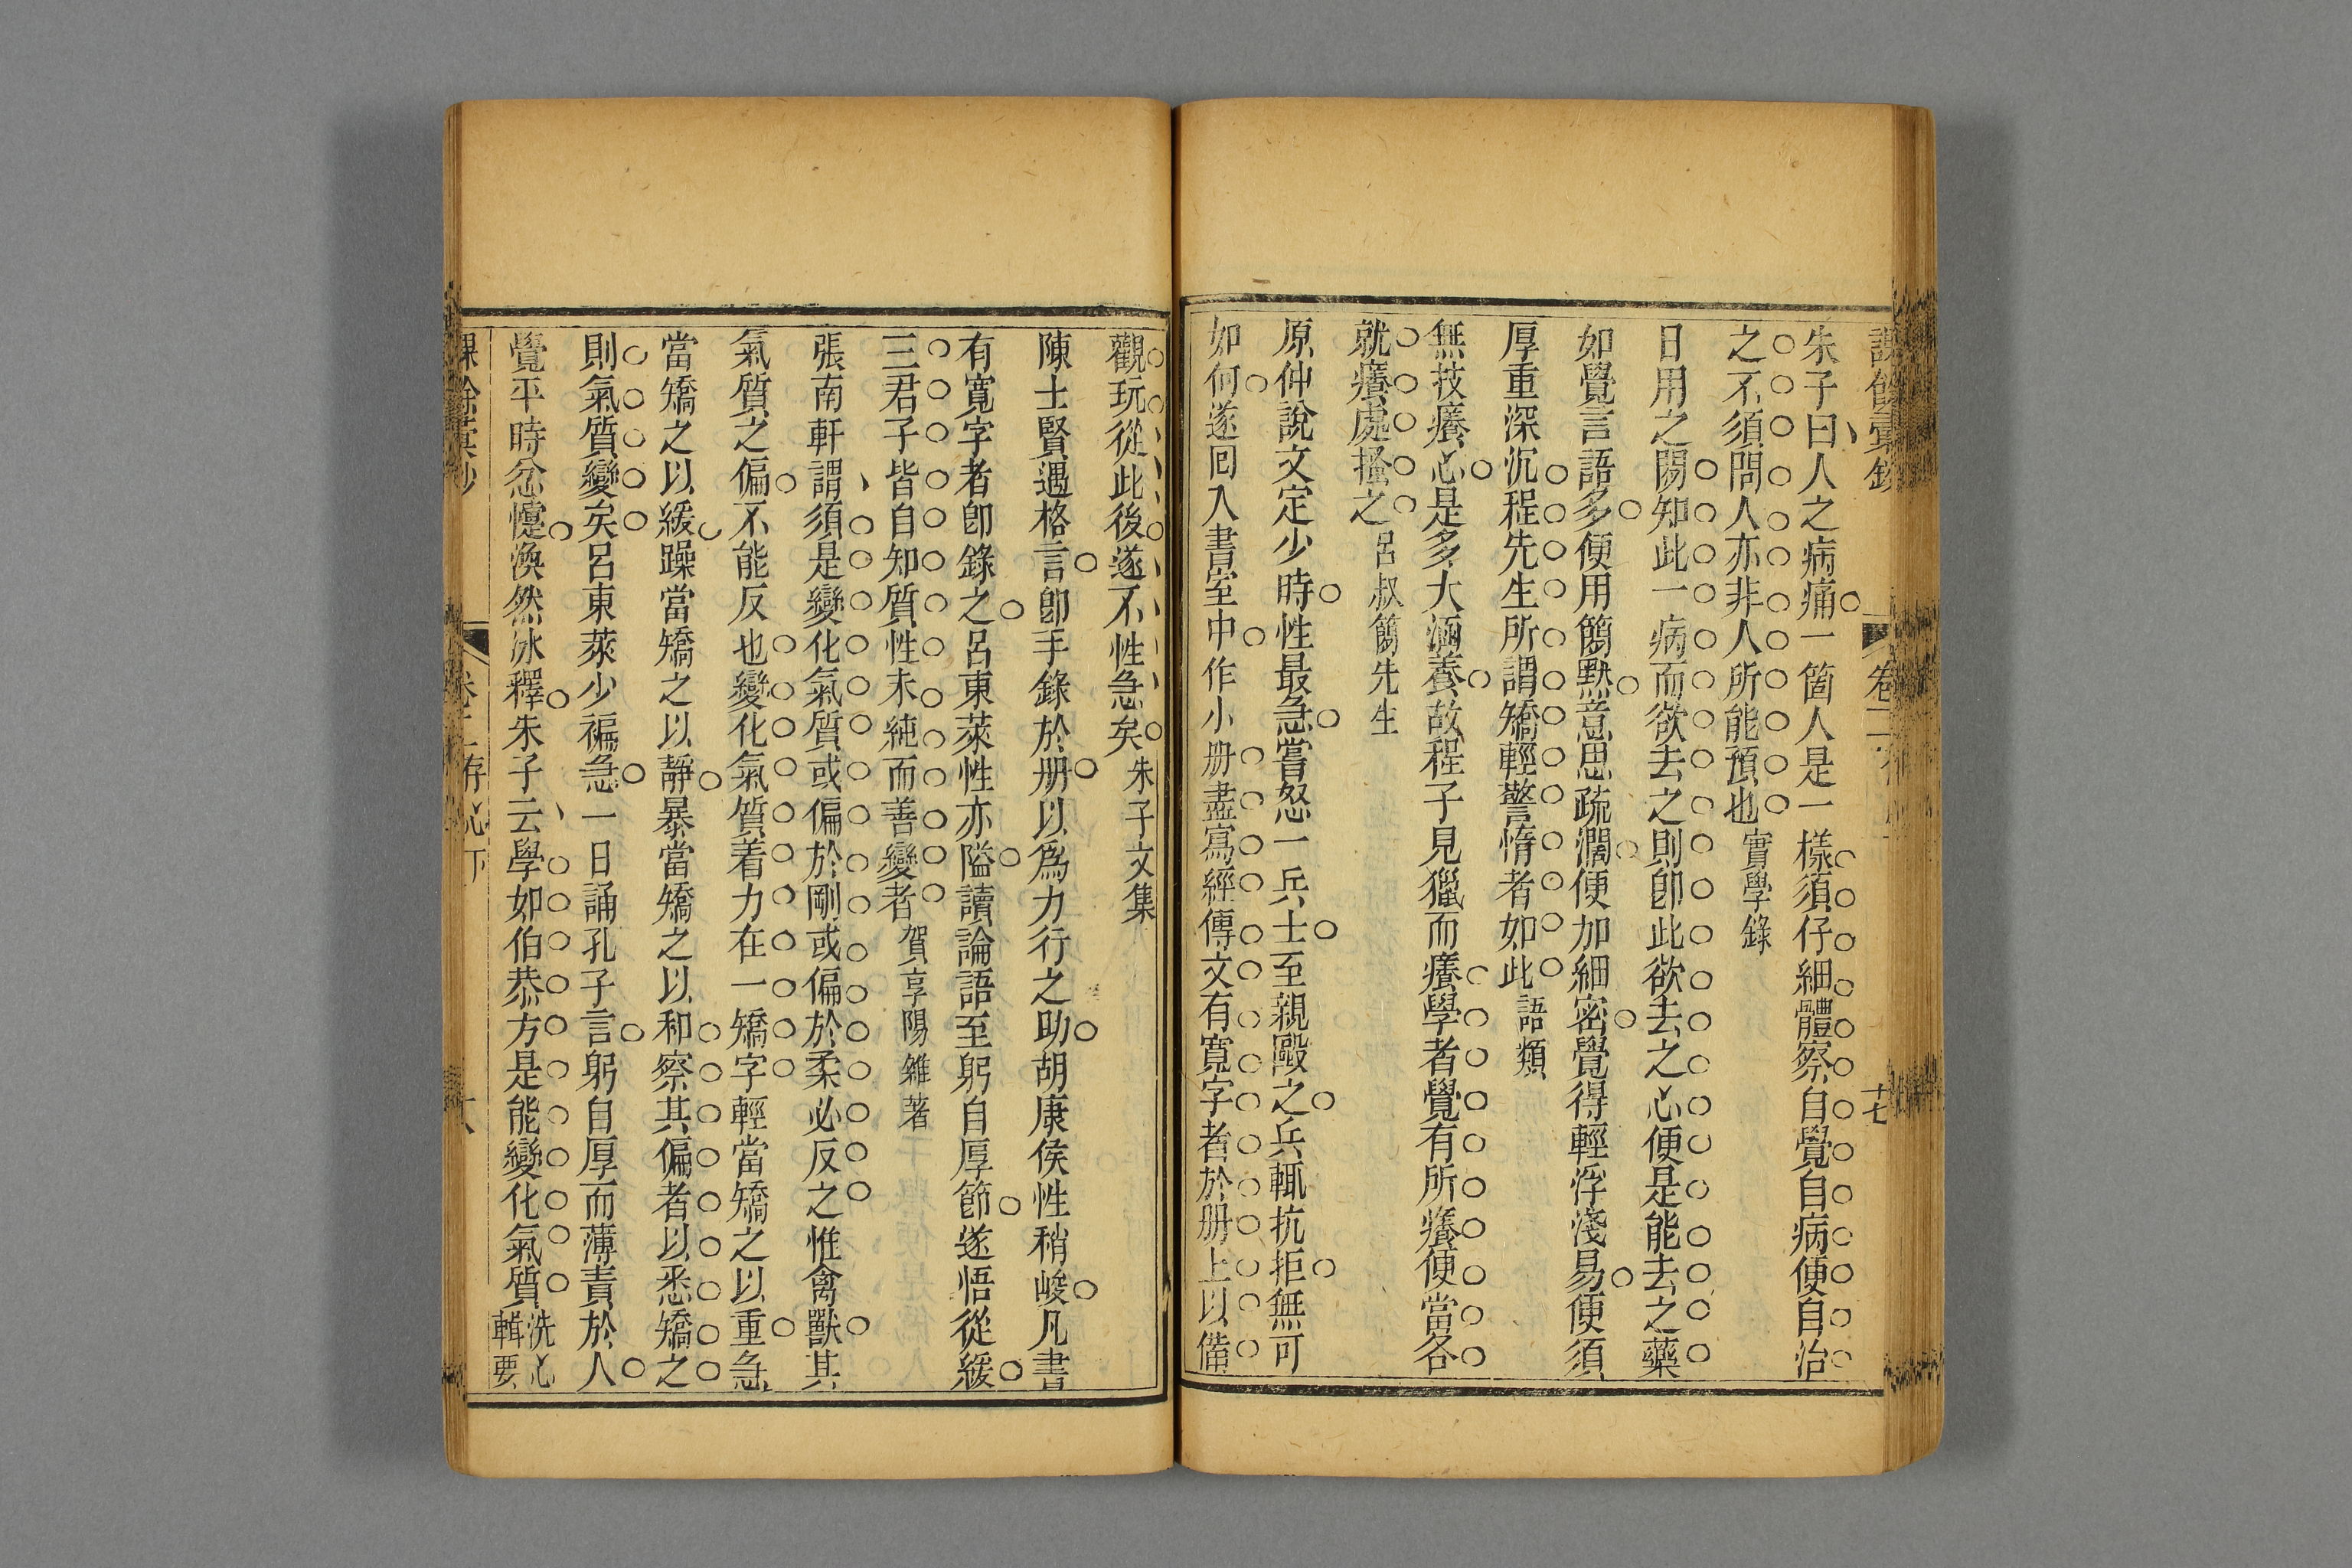 卷二
十七
朱子曰人之病痛一箇人是一樣須仔細體察自覺自病便自治
之不須問人亦非人所能預也實學錄
日用之閒知此一病而欲去之則卽此欲去之心便是能去之藥
如覺言語多便用簡默意思疏濶便加細密覺得輕浮淺易便須
厚重深沉程先生所謂矯輕警惰者如此語類
無技癢心是多大涵養故程子見獵而癢學者覺有所癢便當各
就癢處搔之呂叔簡先生
原仲說文定少時性最急嘗怒一兵士至親毆之兵輒抗拒無可
如何遂囘入書室中作小册盡寫經傳文有寬字者於册上以備
觀玩從此後遂不性急矣朱子文集
陳士賢遇格言卽手錄於册以爲力行之助胡康侯性稍峻凡書
有寬字者卽錄之呂東萊性亦隘讀論語至躬自厚節遂悟從緩
三君子皆自知質性未純而善變者賀享陽雜著
張南軒謂須是變化氣質或偏於剛或偏於柔必反之惟禽獸其
氣質之偏不能反也變化氣質着力在一矯字輕當矯之以重急
當矯之以緩躁當矯之以靜暴當矯之以和察其偏者以悉矯之
則氣質變矣呂東萊少褊急一日誦孔子言躬自厚而薄責於人
覺平時忿懥渙然冰釋朱子云學如伯恭方是能變化氣質洗心
輯要
卷二存心下